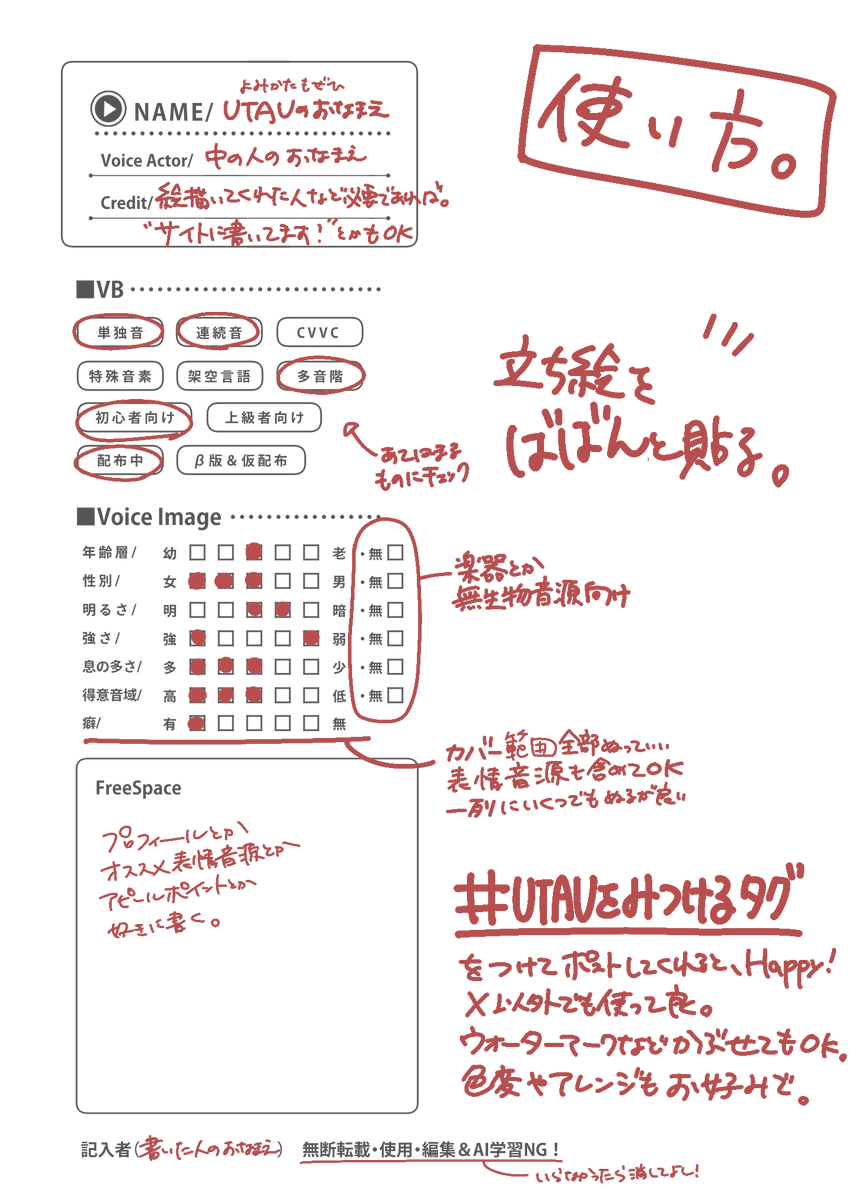 使い方。
よみかたもぜひ
NAME/ UTAUのおなまえ
Voice Actor/ 中の人のおなまえ
Credit/ 絵描いてくれた人など必要であれば。
"サイトに書いてます!"とかもOK
■VB
単独音 連続音 CVVC
特殊音素 架空言語 多音階
初心者向け 上級者向け
配布中 β版&仮配布
あてはまる
ものにチェック
立ち絵を
ばばんと貼る。
■Voice Image
年齢層/ 幼 老 ・無
性別/ 女 男 ・無
明るさ/ 明 暗 ・無
強さ/ 強 弱 ・無
息の多さ/ 多 少 ・無
得意音域/ 高 低 ・無
癖/ 有 無
楽器とか
無生物音源向け
カバー範囲全部ぬっていい
表情音源も含めてOK
一列にいくつでもぬるが良い
FreeSpace
プロフィールとか
オススメ表情音源とか
アピールポイントとか
好きに書く。
#UTAUをみつけるタグ
をつけてポストしてくれると、Happy!
X以外でも使って良。
ウォーターマークなどかぶせてもOK.
色変やアレンジもお好みで。
記入者(書いた人のおなまえ) 無断転載・使用・編集&AI学習NG!
いらなかったら消してよし!